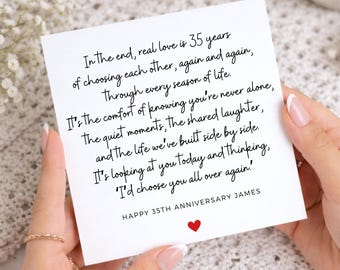 In the end, real love is 35 years
of choosing each other, again and again,
through every season of life.
It's the comfort of knowing you're never alone,
the quiet moments, the shared laughter,
and the life we've built side by side.
It's looking at you today and thinking,
'I'd choose you all over again.'
HAPPY 35TH ANNIVERSARY JAMES